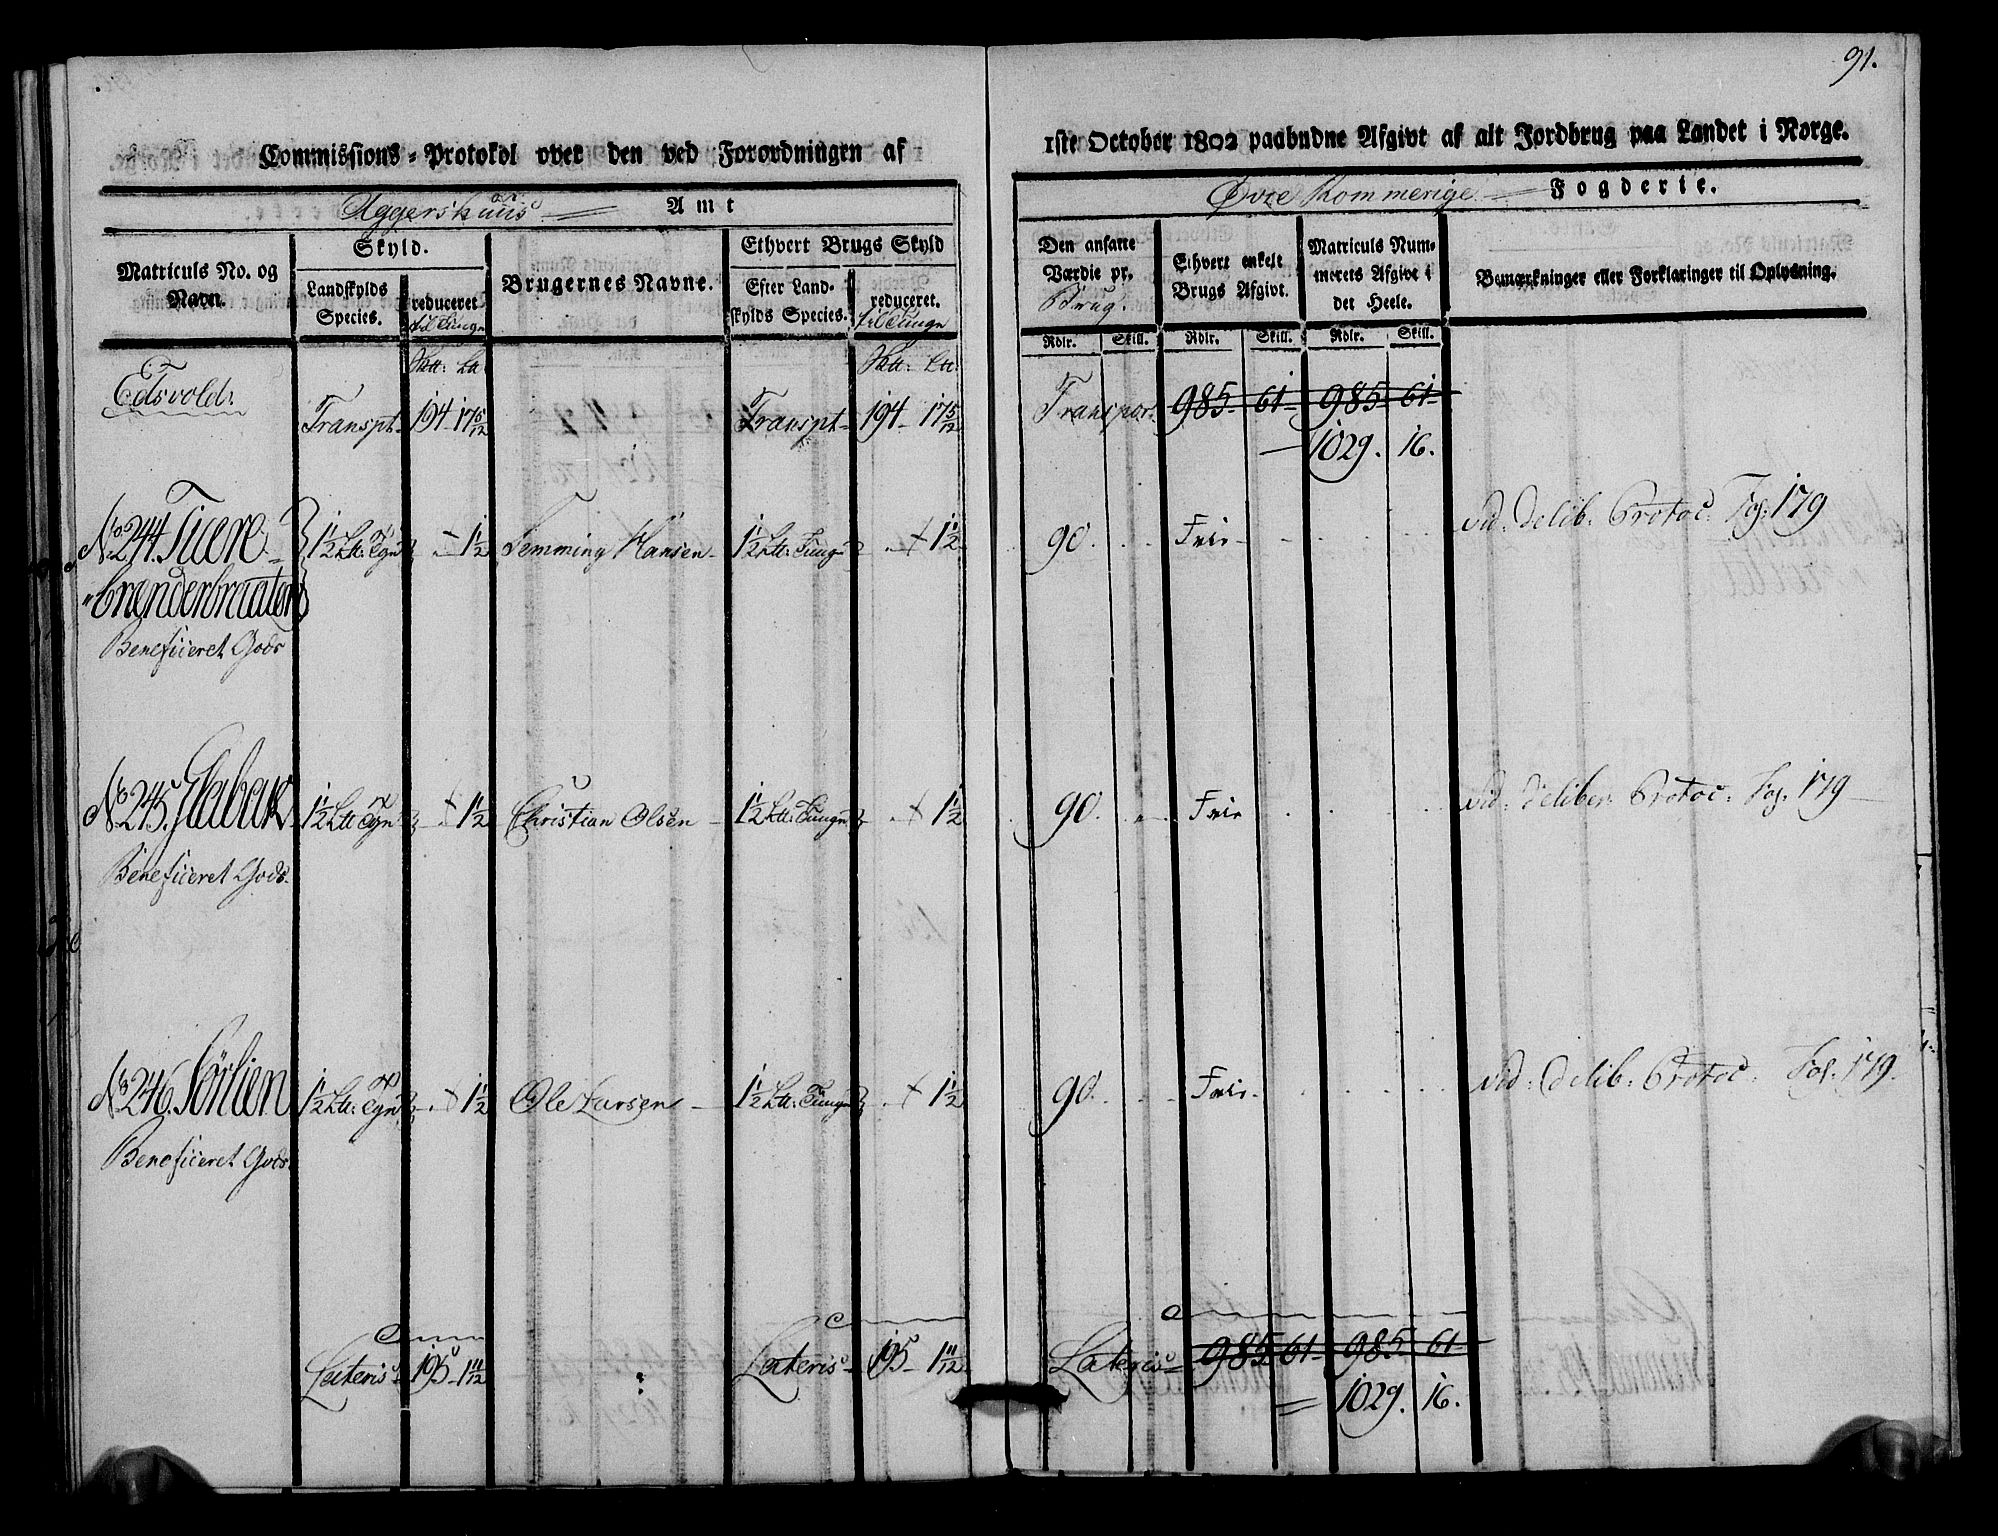 91.
Commissions-Protokol over den ved Forordningen af
1ste October 1802 paabudne Afgivt af alt Jordbrug paa Landet i Norge.
Aggershuus Amt
Øvre Rommerige Fogderie.
Matriculs No. og Navn.
Skyld.
Landskylds Species.
reduceret til Tunge
Brugernes Navne.
Ethvert Brugs Skyld
Efter Landskylds Species.
reduceret. til Tunge
Den ansatte Værdie pr. Brug.
Ethvert enkelt Brugs Afgivt.
Matriculs Nummerets Afgivt i det Heele.
Bemærkninger eller Forklaringer til Oplysning.
Rdlr. Skill. Rdlr. Skill. Rdlr. Skill.
Edsvold:
Transpt 194 17 5/12 Transpt 194 17 5/12 Transpor. 985 61 985 61
1029. 16.
No 244. Tuere brænderbraaten 1 1/2 Ltt: Tgn 1 1/2 Femming Hansen 1 1/2 Ltt: Tunge 1 1/2 90. Frie vid: delib: Protoc: Fol: 179
Beneficeret Gods
No 245. Glabak 1 1/2 Ltt: Tgn 1 1/2 Christian Olsen 1 1/2 Ltt: Tunge 1 1/2 90. Frie vid: deliber: Protoc: Fol: 179
Beneficeret Gods.
No 246. Sørlien 1 1/2 Ltt: Tgn 1 1/2 Ole Larsen 1 1/2 Ltt: Tunge 1 1/2 90. Frie vid: delib: Protoc: Fol: 179.
Beneficeret Gods.
Lateris 195 1 11/12 Lateris 195 1 11/12 Lateris 985 61 985 61
1029. 16.